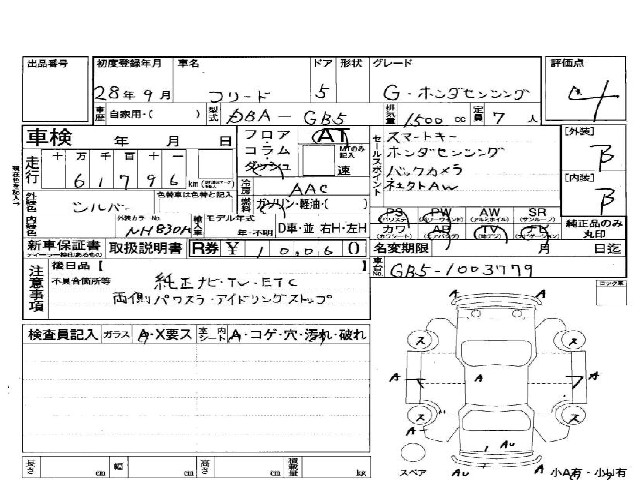 出品番号 初度登録年月 車名 ドア 形状 グレード 評価点
28年9月 フリード 5 G・ホンダセンシング 4
車歴 自家用・( ) 型式 DBA-GB5 排気量 1500cc 定員 7人
車検 年 月 日 フロア・コラム・ダッシュ AT MTのみ記入 速
セールスポイント スマートキー
ホンダセンシング
バックカメラ
ネェクトAW
[外装] B
[内装] B
走行 十万千百十一 61796km
冷房 AAC
燃料 ガソリン・軽油・( )
外装色 シルバー 色替車は色替と記入
内装色 外装カラーNo. NH830M 輸入車 モデル年式 年・不明 D車・並 右H・左H
PS PW AW SR
カワ AB TV ナビ 純正品のみ丸印
新車保証書 取扱説明書 R券 ¥10,060
名変期限 月 日迄
車台No. GB5-1003779
注意事項 後日品【 】
不具合箇所等 純正ナビ・TV・ETC
両側パワスラ・アイドリングストップ
ロック車
検査員記入 ガラス A・X要ス 室内シート A・コゲ・穴・汚れ・破れ
A
ス ス
A A A
ス ス
A
AU
スペア AU A 小A有・小U有
長さ cm 幅 cm 高さ cm 積載量 kg